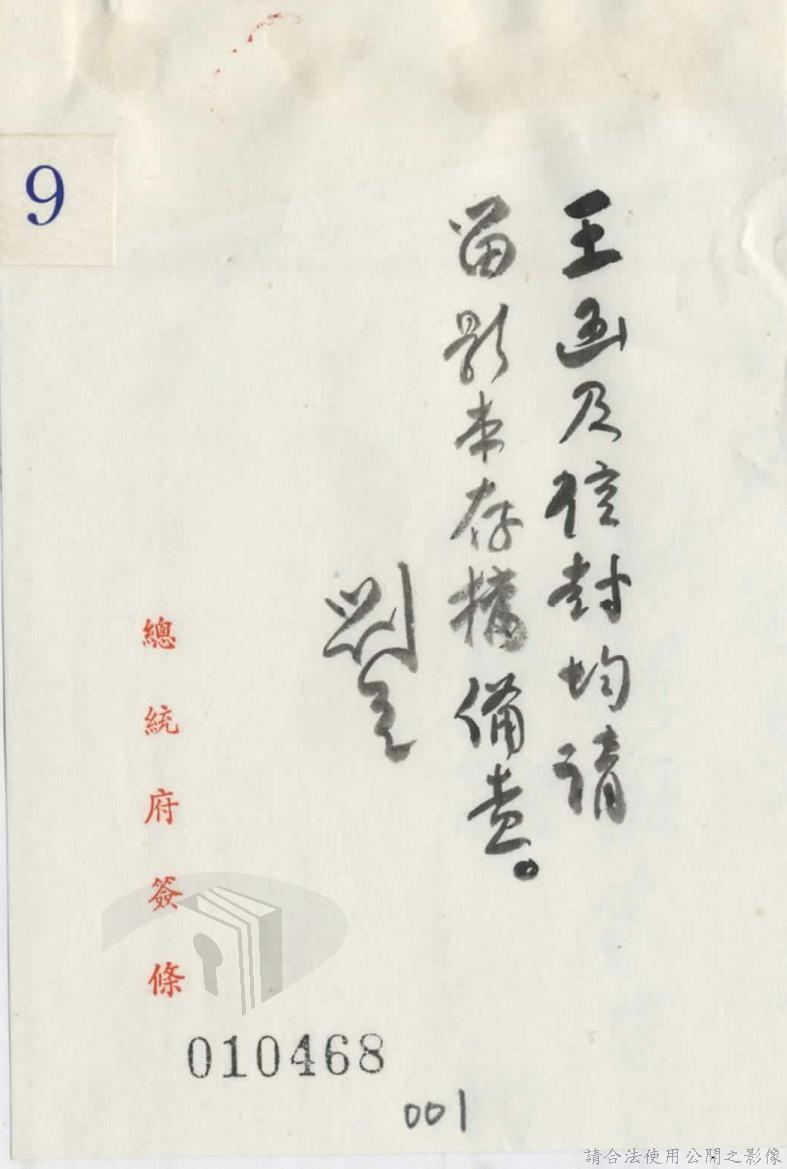 9
王函及信封均請
留影本存檔備查。
劉
總統府簽條
010468
001
請合法使用公開之影像